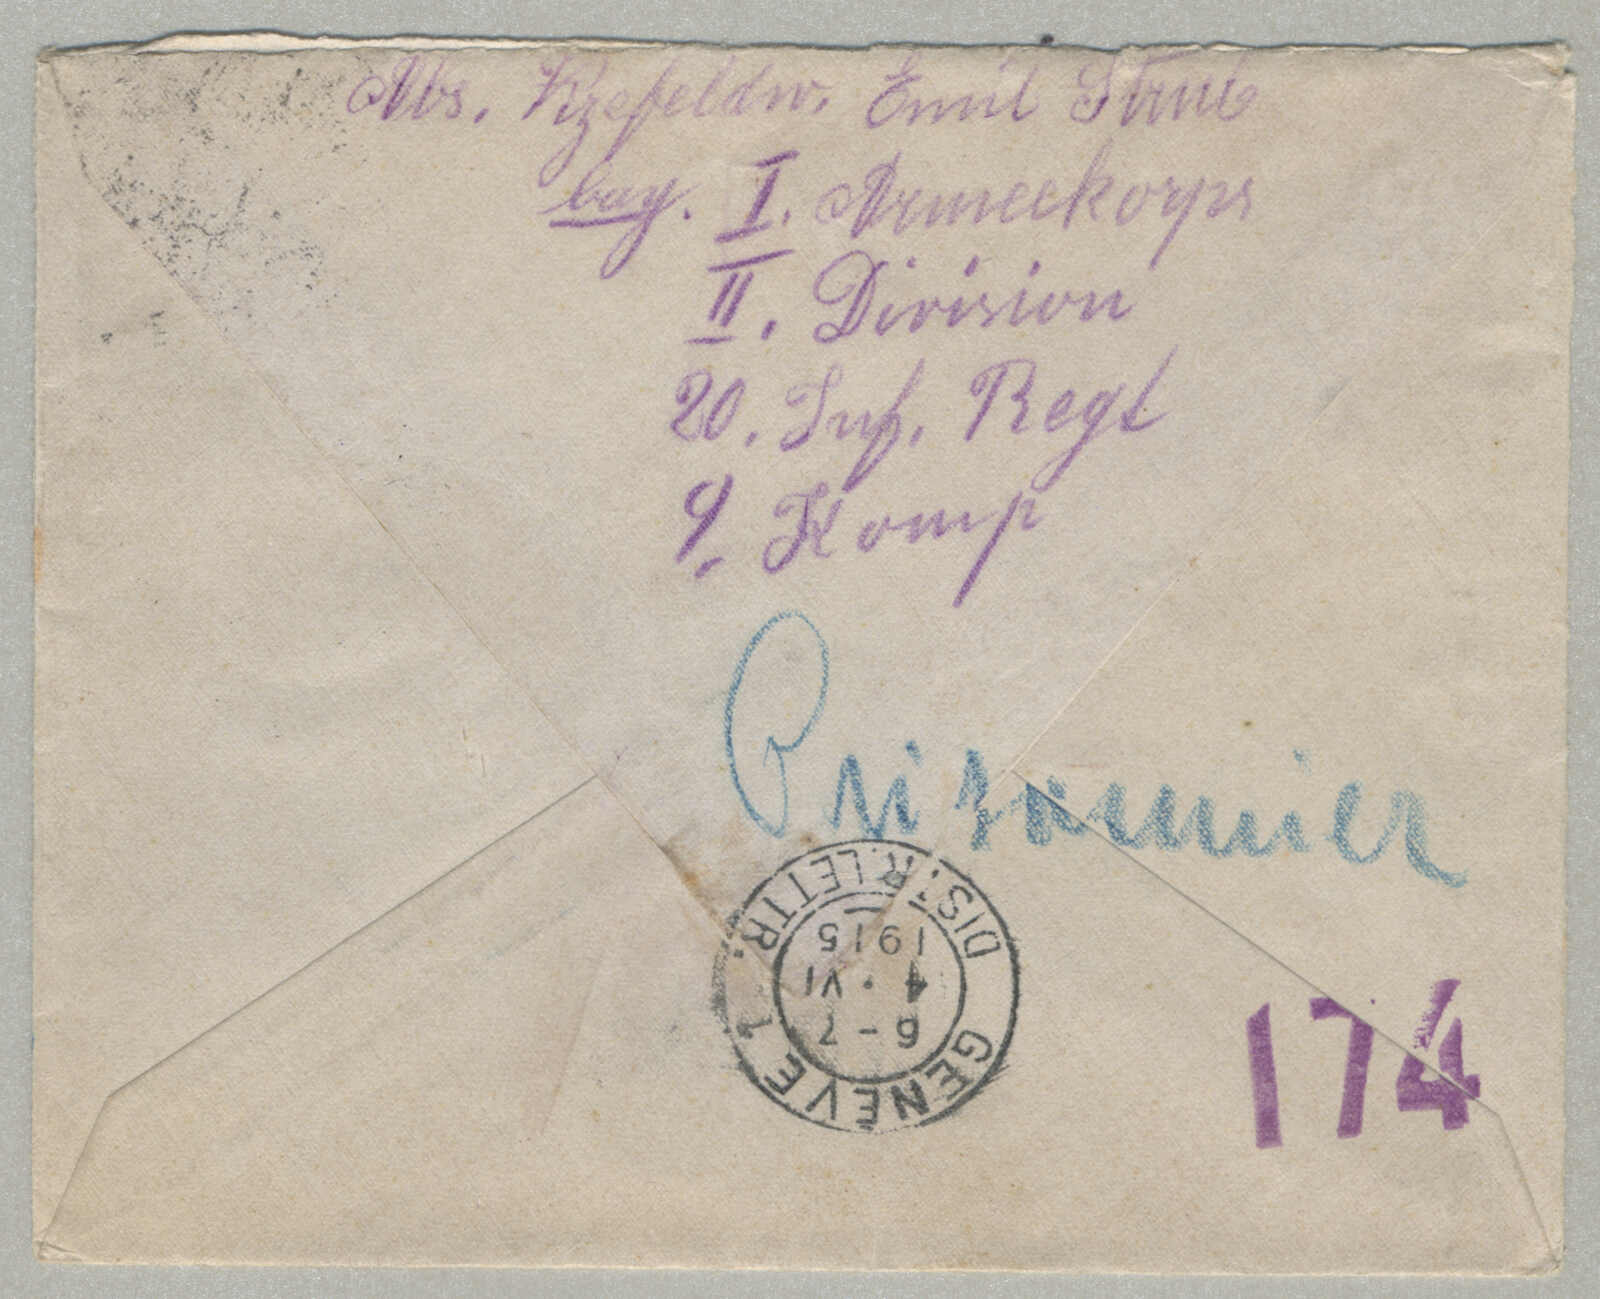 Abs. Vizefeldw. Emil Strub
bay. I. Armeekorps
II. Division
20. Inf. Regt
9. Komp
Prisonnier
GENÈVE 1
DISTR. LETTR.
6-7
4·VI
1915
174